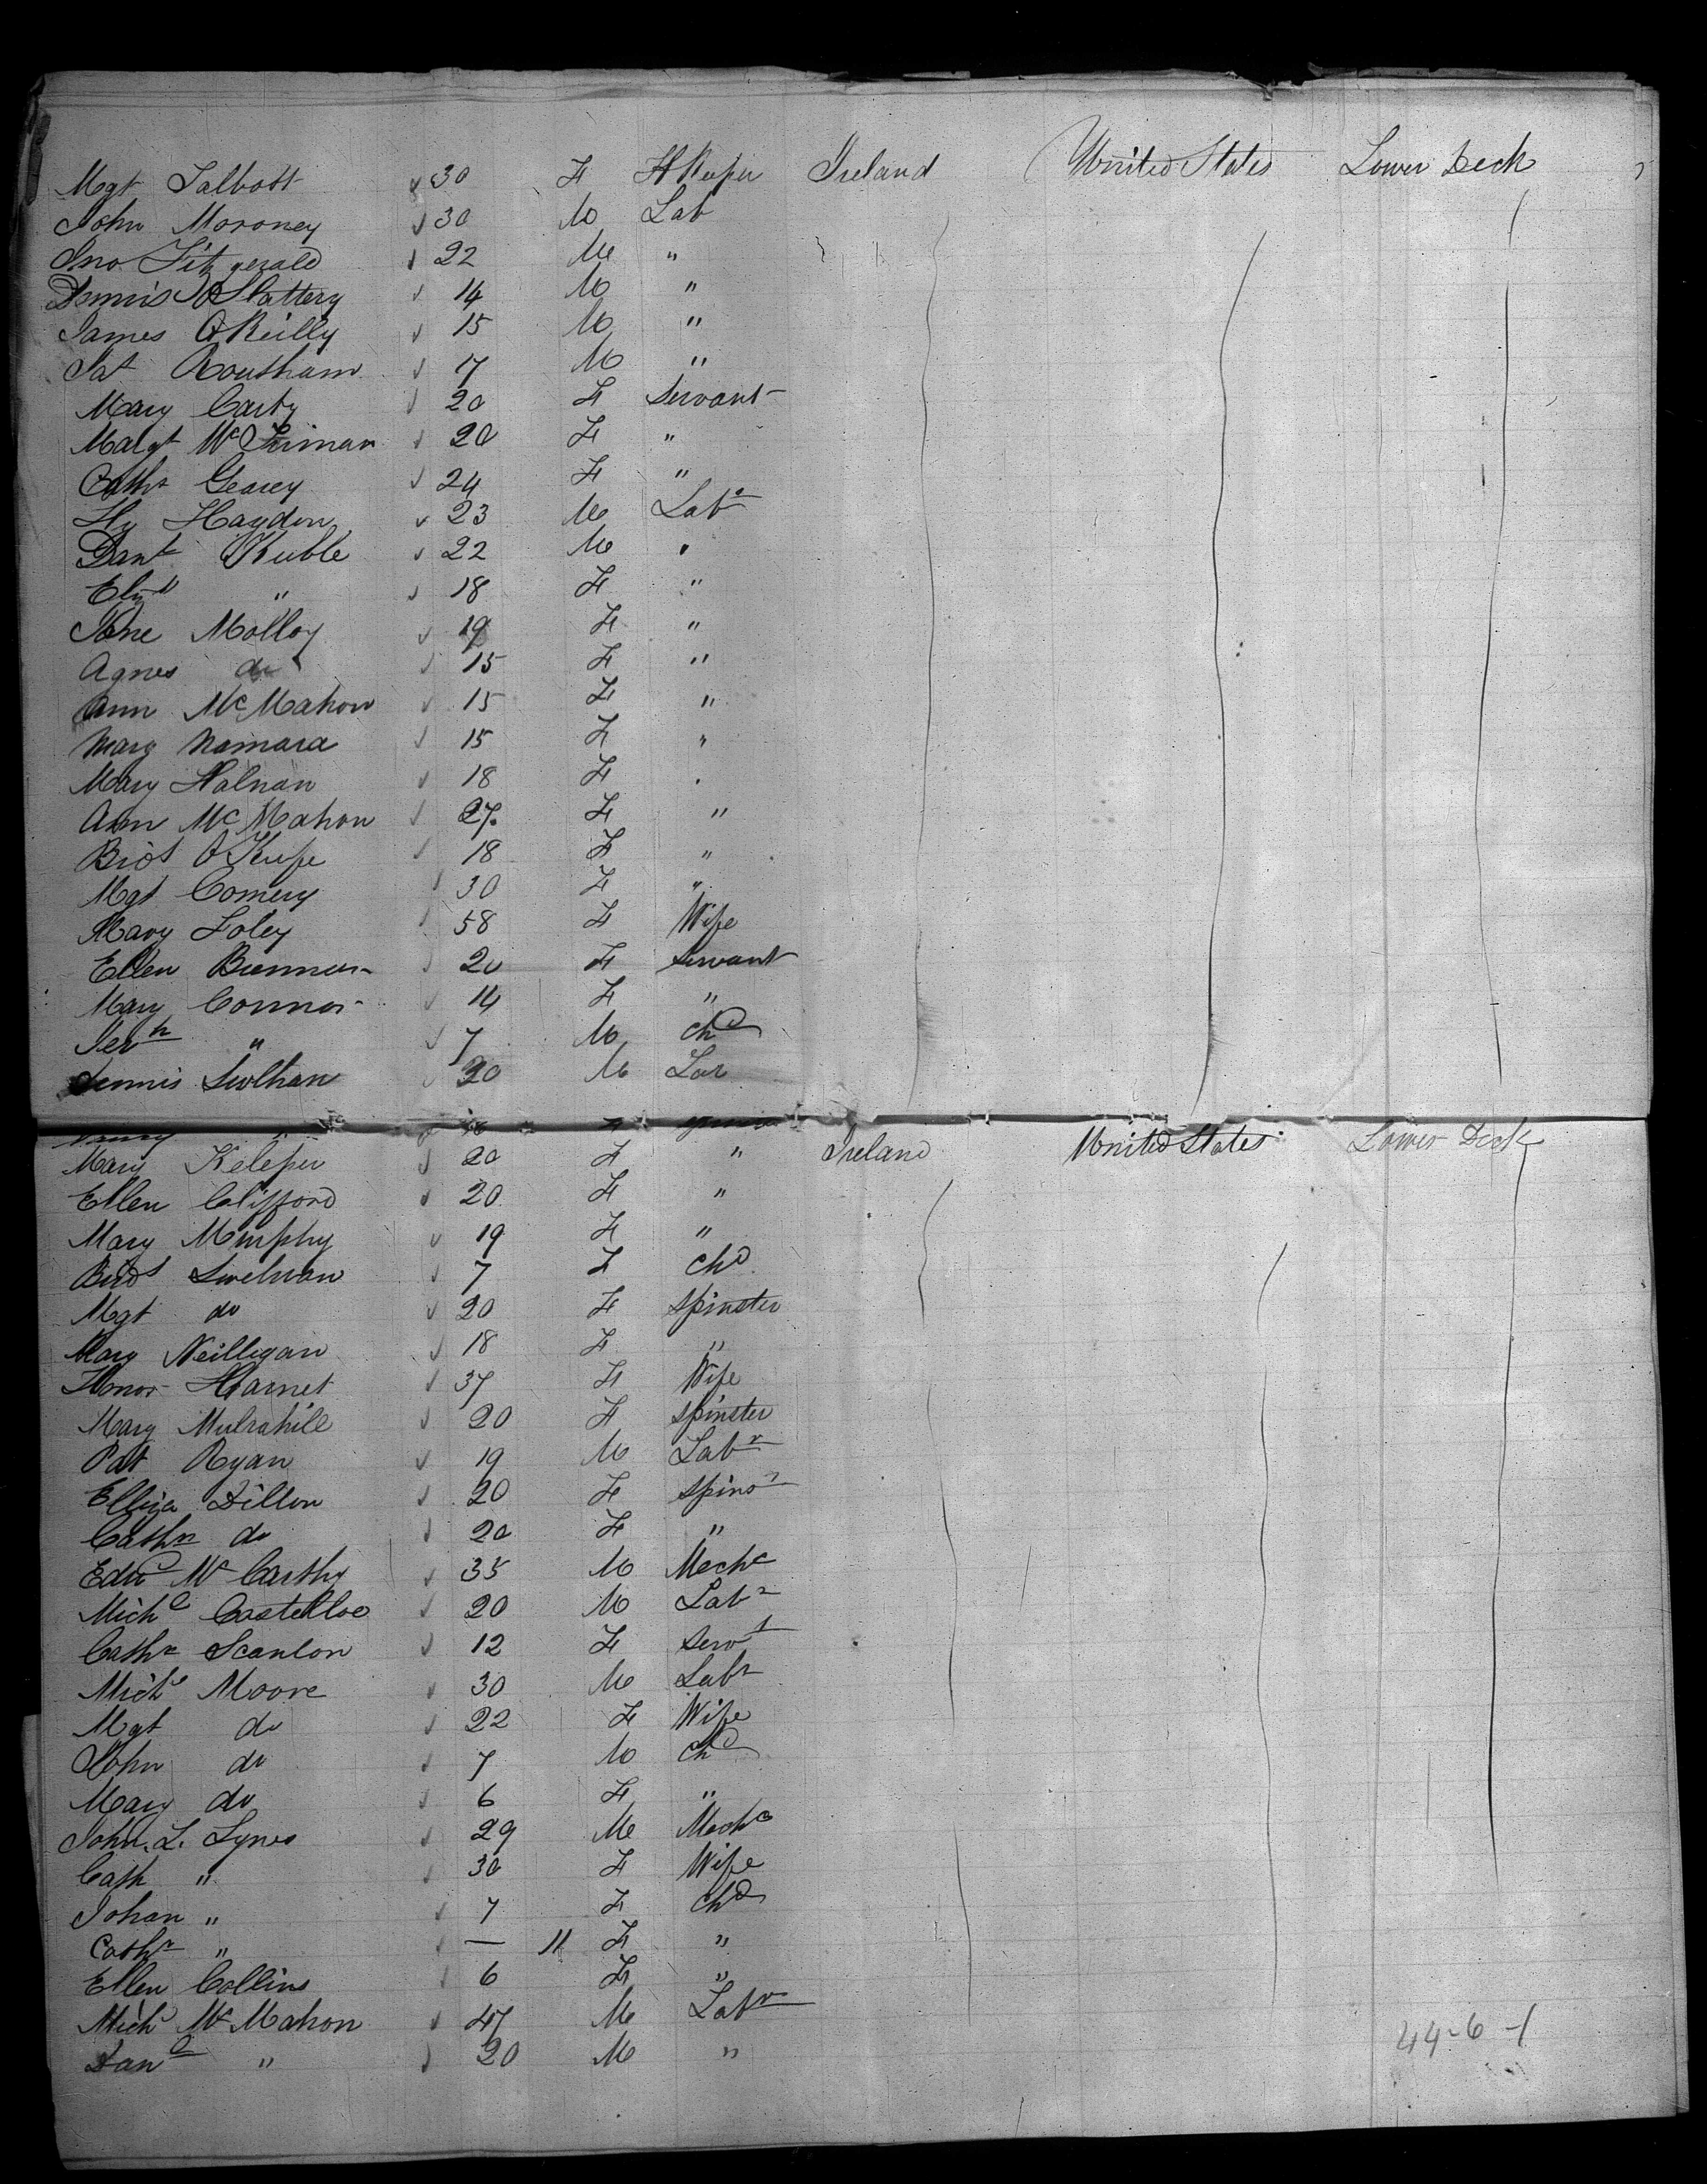 Mgt Talbott 30 F H Keeper Ireland United States Lower Deck
John Moroney 30 M Lab
Jno Fitzgerald 22 M "
Dennis Slattery 14 M "
James O'Reilly 15 M "
Pat 17 M "
Mary Carty 20 F Servant
Margt 20 F "
Cathe Gearey 24 F "
Hy Hayden 23 M Labr
Danl Keeble 22 M "
Elizth " 18 F "
Jane Molloy 19 F "
Agnes do 15 F "
Ann McMahon 15 F "
Mary Namara 15 F "
Mary Halnan 18 F "
Ann McMahon 27 F "
Bridt O'Keefe 18 F "
Mgt Comery 30 F "
Mary Foley 58 F Wife
Ellen 20 F Servant
Mary Connor 14 F "
Jerh " 7 M chd
Dennis 20 M Lar
Mary Keleher 20 F " Ireland United States Lower Deck
Ellen Clifford 20 F "
Mary Murphy 19 F "
Bridt 7 F chd
Mgt do 20 F Spinster
Mary Neilligan 18 F "
Honor Harnet 37 F Wife
Mary Mulrahill 20 F Spinster
Pat Ryan 19 M Labr
Elliza Dillon 20 F Spinsr
Cathe do 20 F "
Edwd McCarthy 35 M Mechc
Michl Castelloe 20 M Labr
Cathe Scanlon 12 F Servt
Michl Moore 30 M Labr
Mgt do 22 F Wife
John do 7 M chd
Mary do 6 F "
John L. Lynes 29 M Mechc
Cath " 30 F Wife
Johan " 7 F chd
Cathe " — 11 F "
Ellen Collins 6 F "
Michl McMahon 47 M Labr
Danl " 20 M "
44-6-1